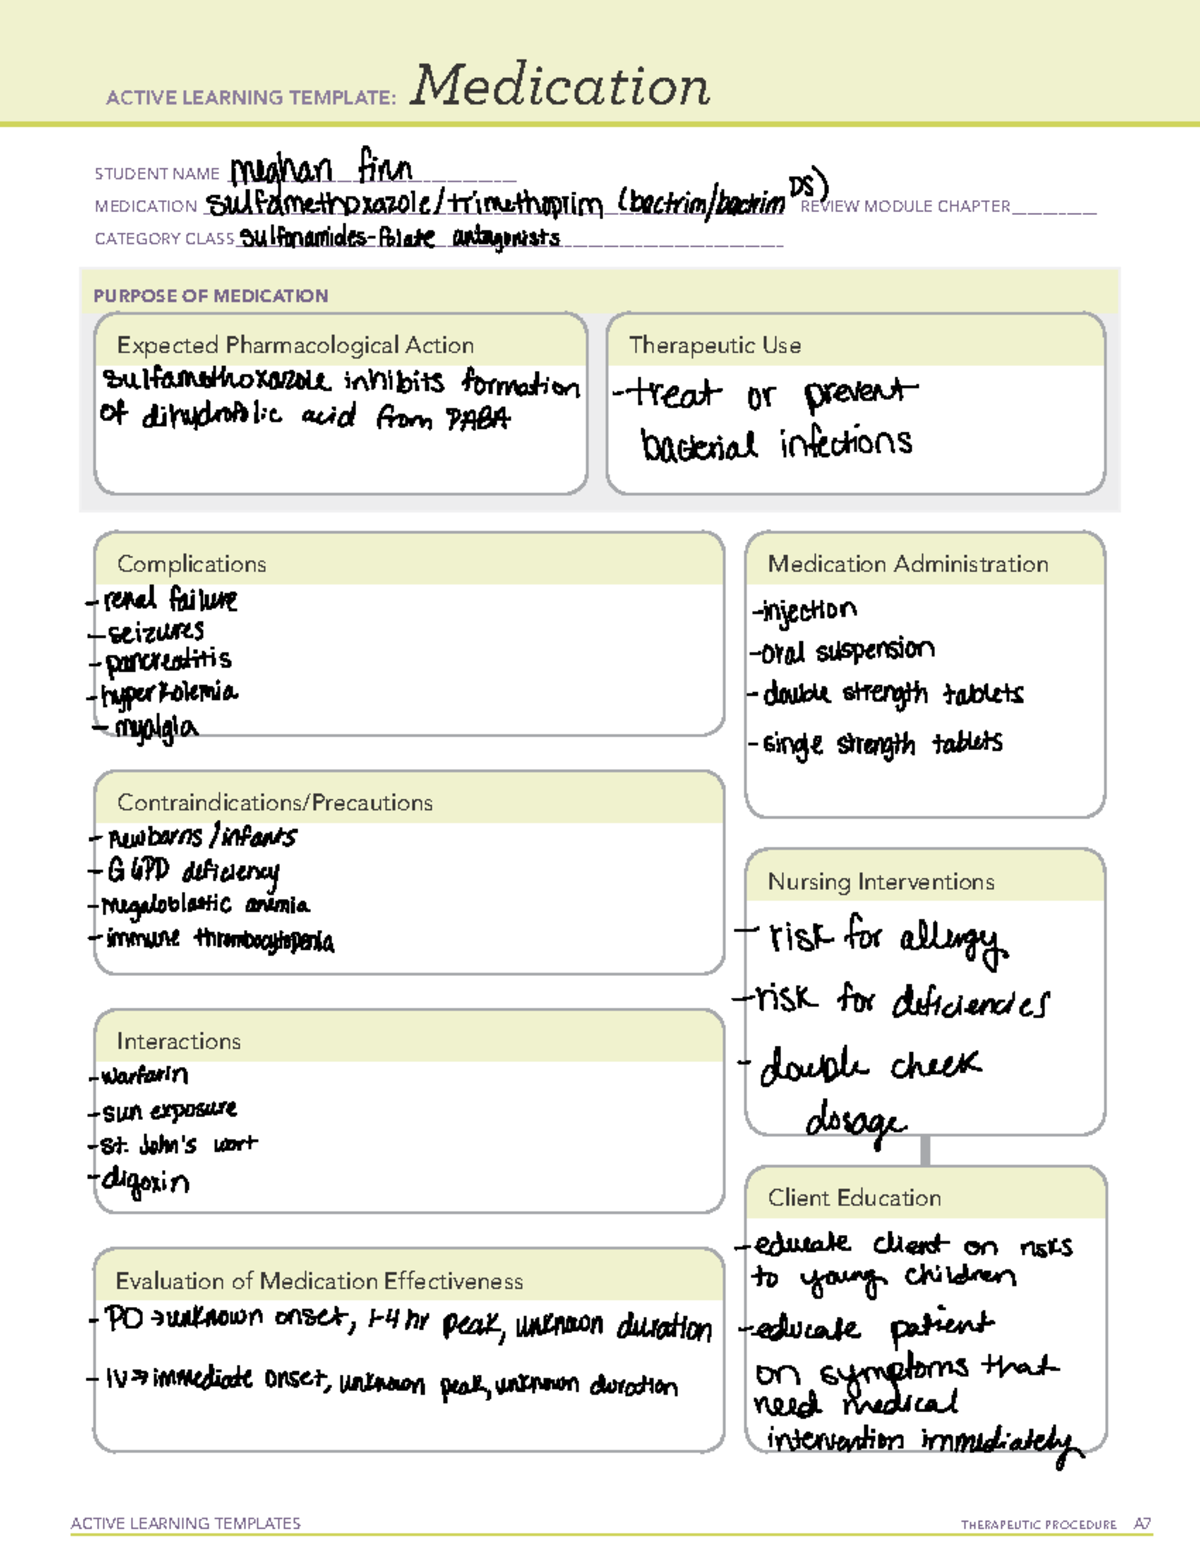 ACTIVE LEARNING TEMPLATE: Medication
STUDENT NAME meghan finn
MEDICATION sulfamethoxazole/trimethoprim (bactrim/bactrim DS) REVIEW MODULE CHAPTER
CATEGORY CLASS sulfonamides-folate antagonists
PURPOSE OF MEDICATION
Expected Pharmacological Action
sulfamethoxazole inhibits formation
of dihydrofolic acid from PABA
Therapeutic Use
-treat or prevent
bacterial infections
Complications
- renal failure
- seizures
- pancreatitis
- hyperkalemia
- myalgia
Medication Administration
-injection
-oral suspension
- double strength tablets
- single strength tablets
Contraindications/Precautions
- Newborns/infants
- G6PD deficiency
- megaloblastic anemia
- immune thrombocytopenia
Nursing Interventions
- risk for allergy
- risk for deficiencies
- double check
dosage
Interactions
- warfarin
- sun exposure
- St. John's wort
- digoxin
Client Education
- educate client on risks
to young children
- educate patient
on symptoms that
need medical
intervention immediately
Evaluation of Medication Effectiveness
- PO → unknown onset, 1-4 hr peak, unknown duration
- IV → immediate onset, unknown peak, unknown duration
ACTIVE LEARNING TEMPLATES
THERAPEUTIC PROCEDURE A7